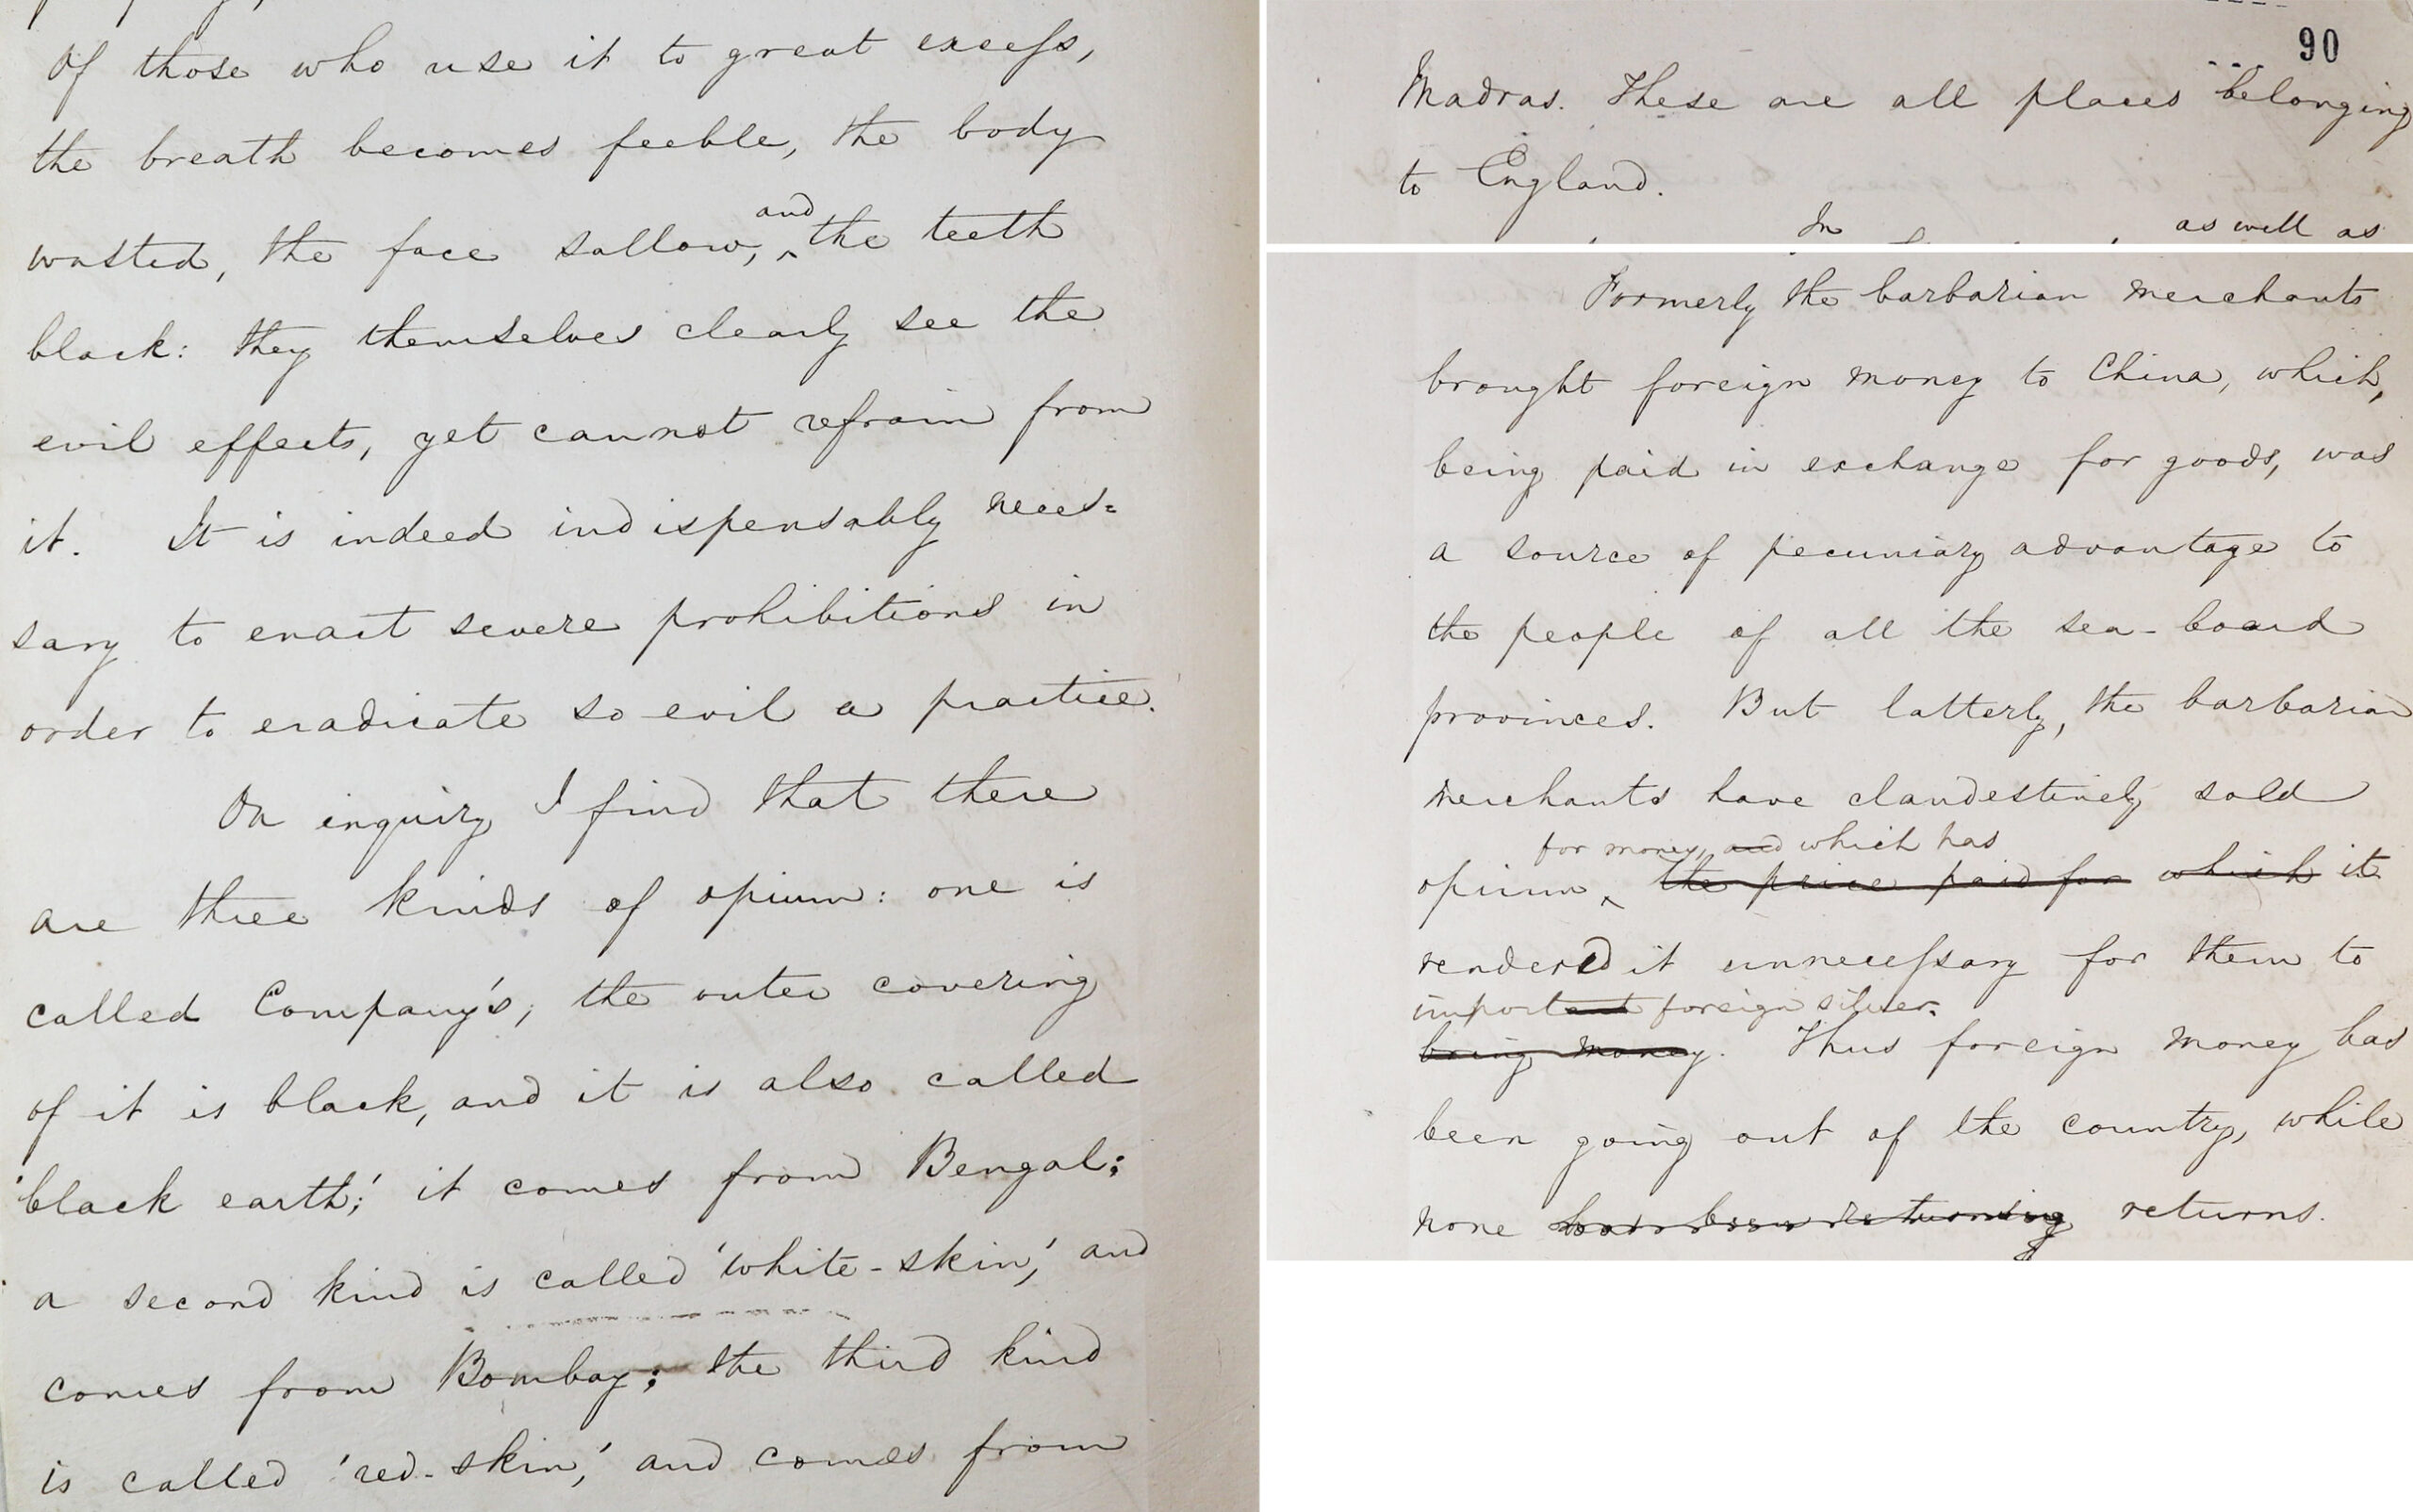 Of those who use it to great excess,
the breath becomes feeble, the body
and
wasted, the face sallow, ‸ the teeth
black: they themselves clearly see the
evil effects, yet cannot refrain from
it. It is indeed indispensably neces=
sary to enact severe prohibitions in
order to eradicate so evil a practice.
On inquiry I find that there
are three kinds of opium: one is
called Company's; the outer covering
of it is black, and it is also called
'black earth;' it comes from Bengal;
a second kind is called 'white-skin,' and
comes from Bombay; the third kind
is called 'red-skin,' and comes from
90
Madras. These are all places belonging
to England.
In as well as
Formerly the barbarian merchants
brought foreign money to China, which,
being paid in exchange for goods, was
a source of pecuniary advantage to
the people of all the sea-board
provinces. But latterly, the barbarian
merchants have clandestinely sold
for money, and which has
opium ‸ the price paid for which it
rendered it unnecessary for them to
important foreign silver.
bring money. Thus foreign money has
been going out of the country, while
none has been returning returns.